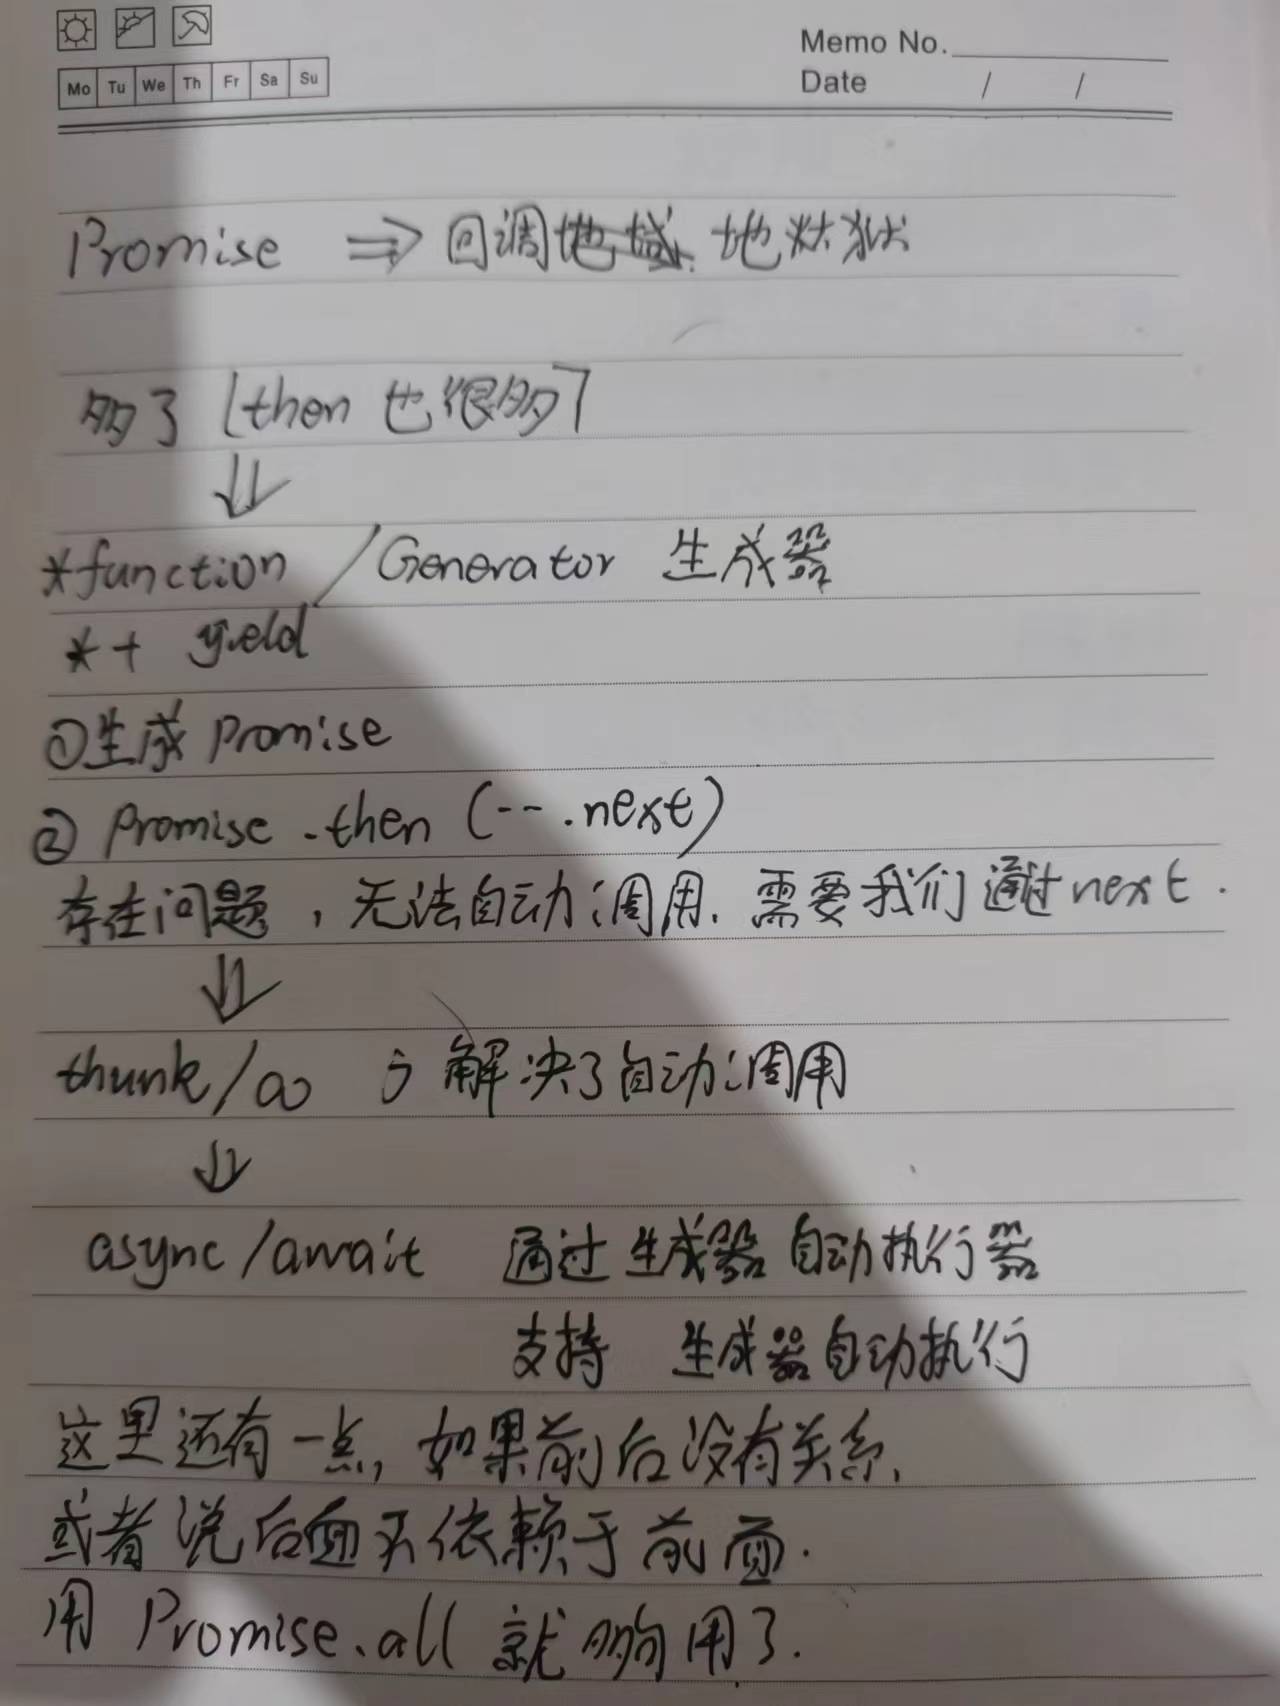 Memo No.
Mo Tu We Th Fr Sa Su
Date / /
Promise ⇒ 回调地域 地狱
多了 [then 也很多]
*function / Generator 生成器
*+ yield
①生成 Promise
② Promise.then (--.next)
存在问题，无法自动调用. 需要我们通过next.
thunk/co 解决了自动调用
async/await 通过生成器自动执行器
支持 生成器自动执行
这里还有一点, 如果前后没有关系,
或者说后面不依赖于前面.
用 Promise.all 就够用了.